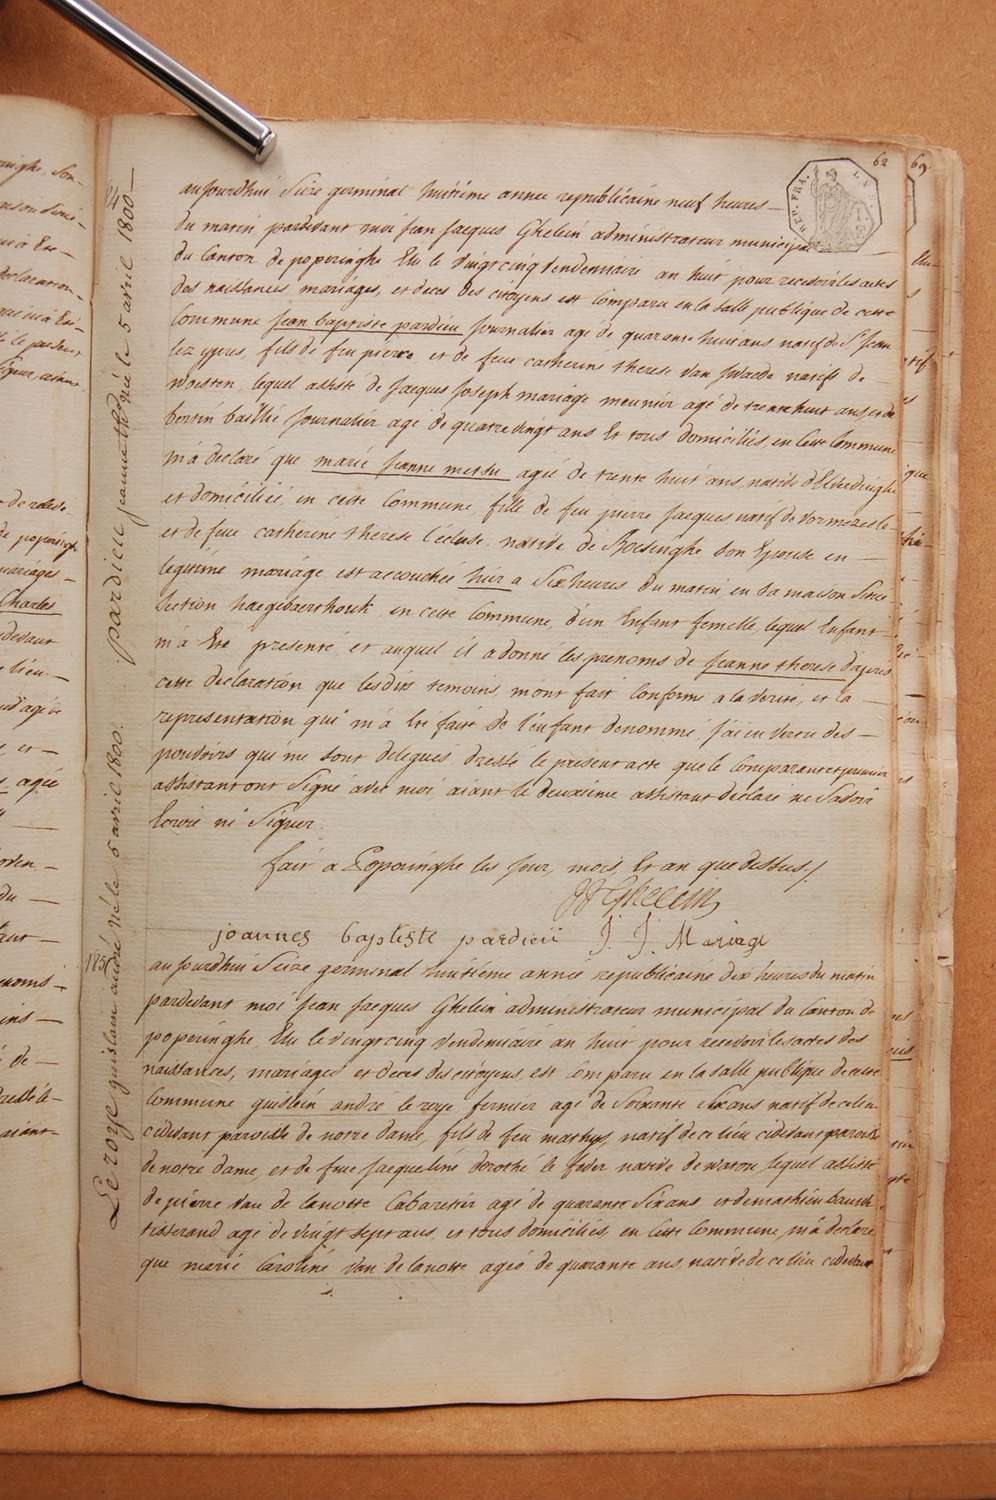 62
69
REP. FRA.
aujourdhui Seize germinal huitième année republicaine neuf heures
du matin pardevant moi jean jacques Ghelein administrateur municipal
du Canton de poperinghe Elu le vingt cinq vendemiaire an huit pour recevoir les actes
des naissances mariages, et deces des citoyens est Comparu en la salle publique de cette
Commune jean baptiste pardieu journalier agé de quarante huit ans natif de St jean
lez ypres, fils de feu pierre et de feue catherine therese van natifs de
woesten, lequel assisté de jacques joseph mariage meunier agé de trente huit ans et de
bertin baillie journalier agé de quatre vingt ans Et tous domiciliés en Cette Commune
m'a declaré que marie jeanne mersu agée de trente huit ans, native d'Elverdinghe
et domiciliée en cette Commune, fille de feu pierre jacques natif de vormezeele
et de feue catherine therese l'écluse native de Boesinghe son Epouse en
legitime mariage est accouchée hier a Six heures du matin en sa maison Sise
Section haegebaerthouk en cette Commune, d'un Enfant femelle lequel Enfant
m'à Eté presenté et auquel il a donné les prenoms de jeanne therese d'apres
cette declaration que les dits temoins m'ont fait Conforme a la verité, et la
representation qui m'à été faite de l'enfant denommé, j'ai en vertu des
pouvoirs qui me sont delegués, dressé le present acte que le Comparant et premier
assistant ont Signé avec moi aiant le deuxieme assistant declaré ne Savoir
Ecrire ni Signer.
fait a Poperinghe les jour, mois, Et an que dessus./
JJ Ghelein
joannes baptiste pardieü J. J. Mariage
aujourdhui Seize germinal huitième année republicaine dix heures du matin
pardevant moi jean jacques Ghelein administrateur municipal du Canton de
poperinghe, Elu le vingt cinq vendemiaire an huit pour recevoir les actes des
naissances, mariages et deces des citoyens, est Comparu en la salle publique de cette
Commune guislein andré le roye fermier agé de Soixante Six ans natif de ce lieu
cidevant paroisse de notre dame, fils de feu mathys, natif de ce lieu cidevant paroisse
de notre dame, et de feue jacqueline dorothé le fever native de watou lequel assisté
de pierre van de lanotte Cabaretier agé de quarante Six ans et de mathieu
tisserand agé de vingt sept ans, et tous domiciliés en Cette Commune, m'à declaré
que marie Caroline van de lanotte agée de quarante ans, native de ce lieu cidevant
pardieu jeanne thérèse né le 5 avril 1800
185
Le roye guislain andré né le 6 avril 1800.